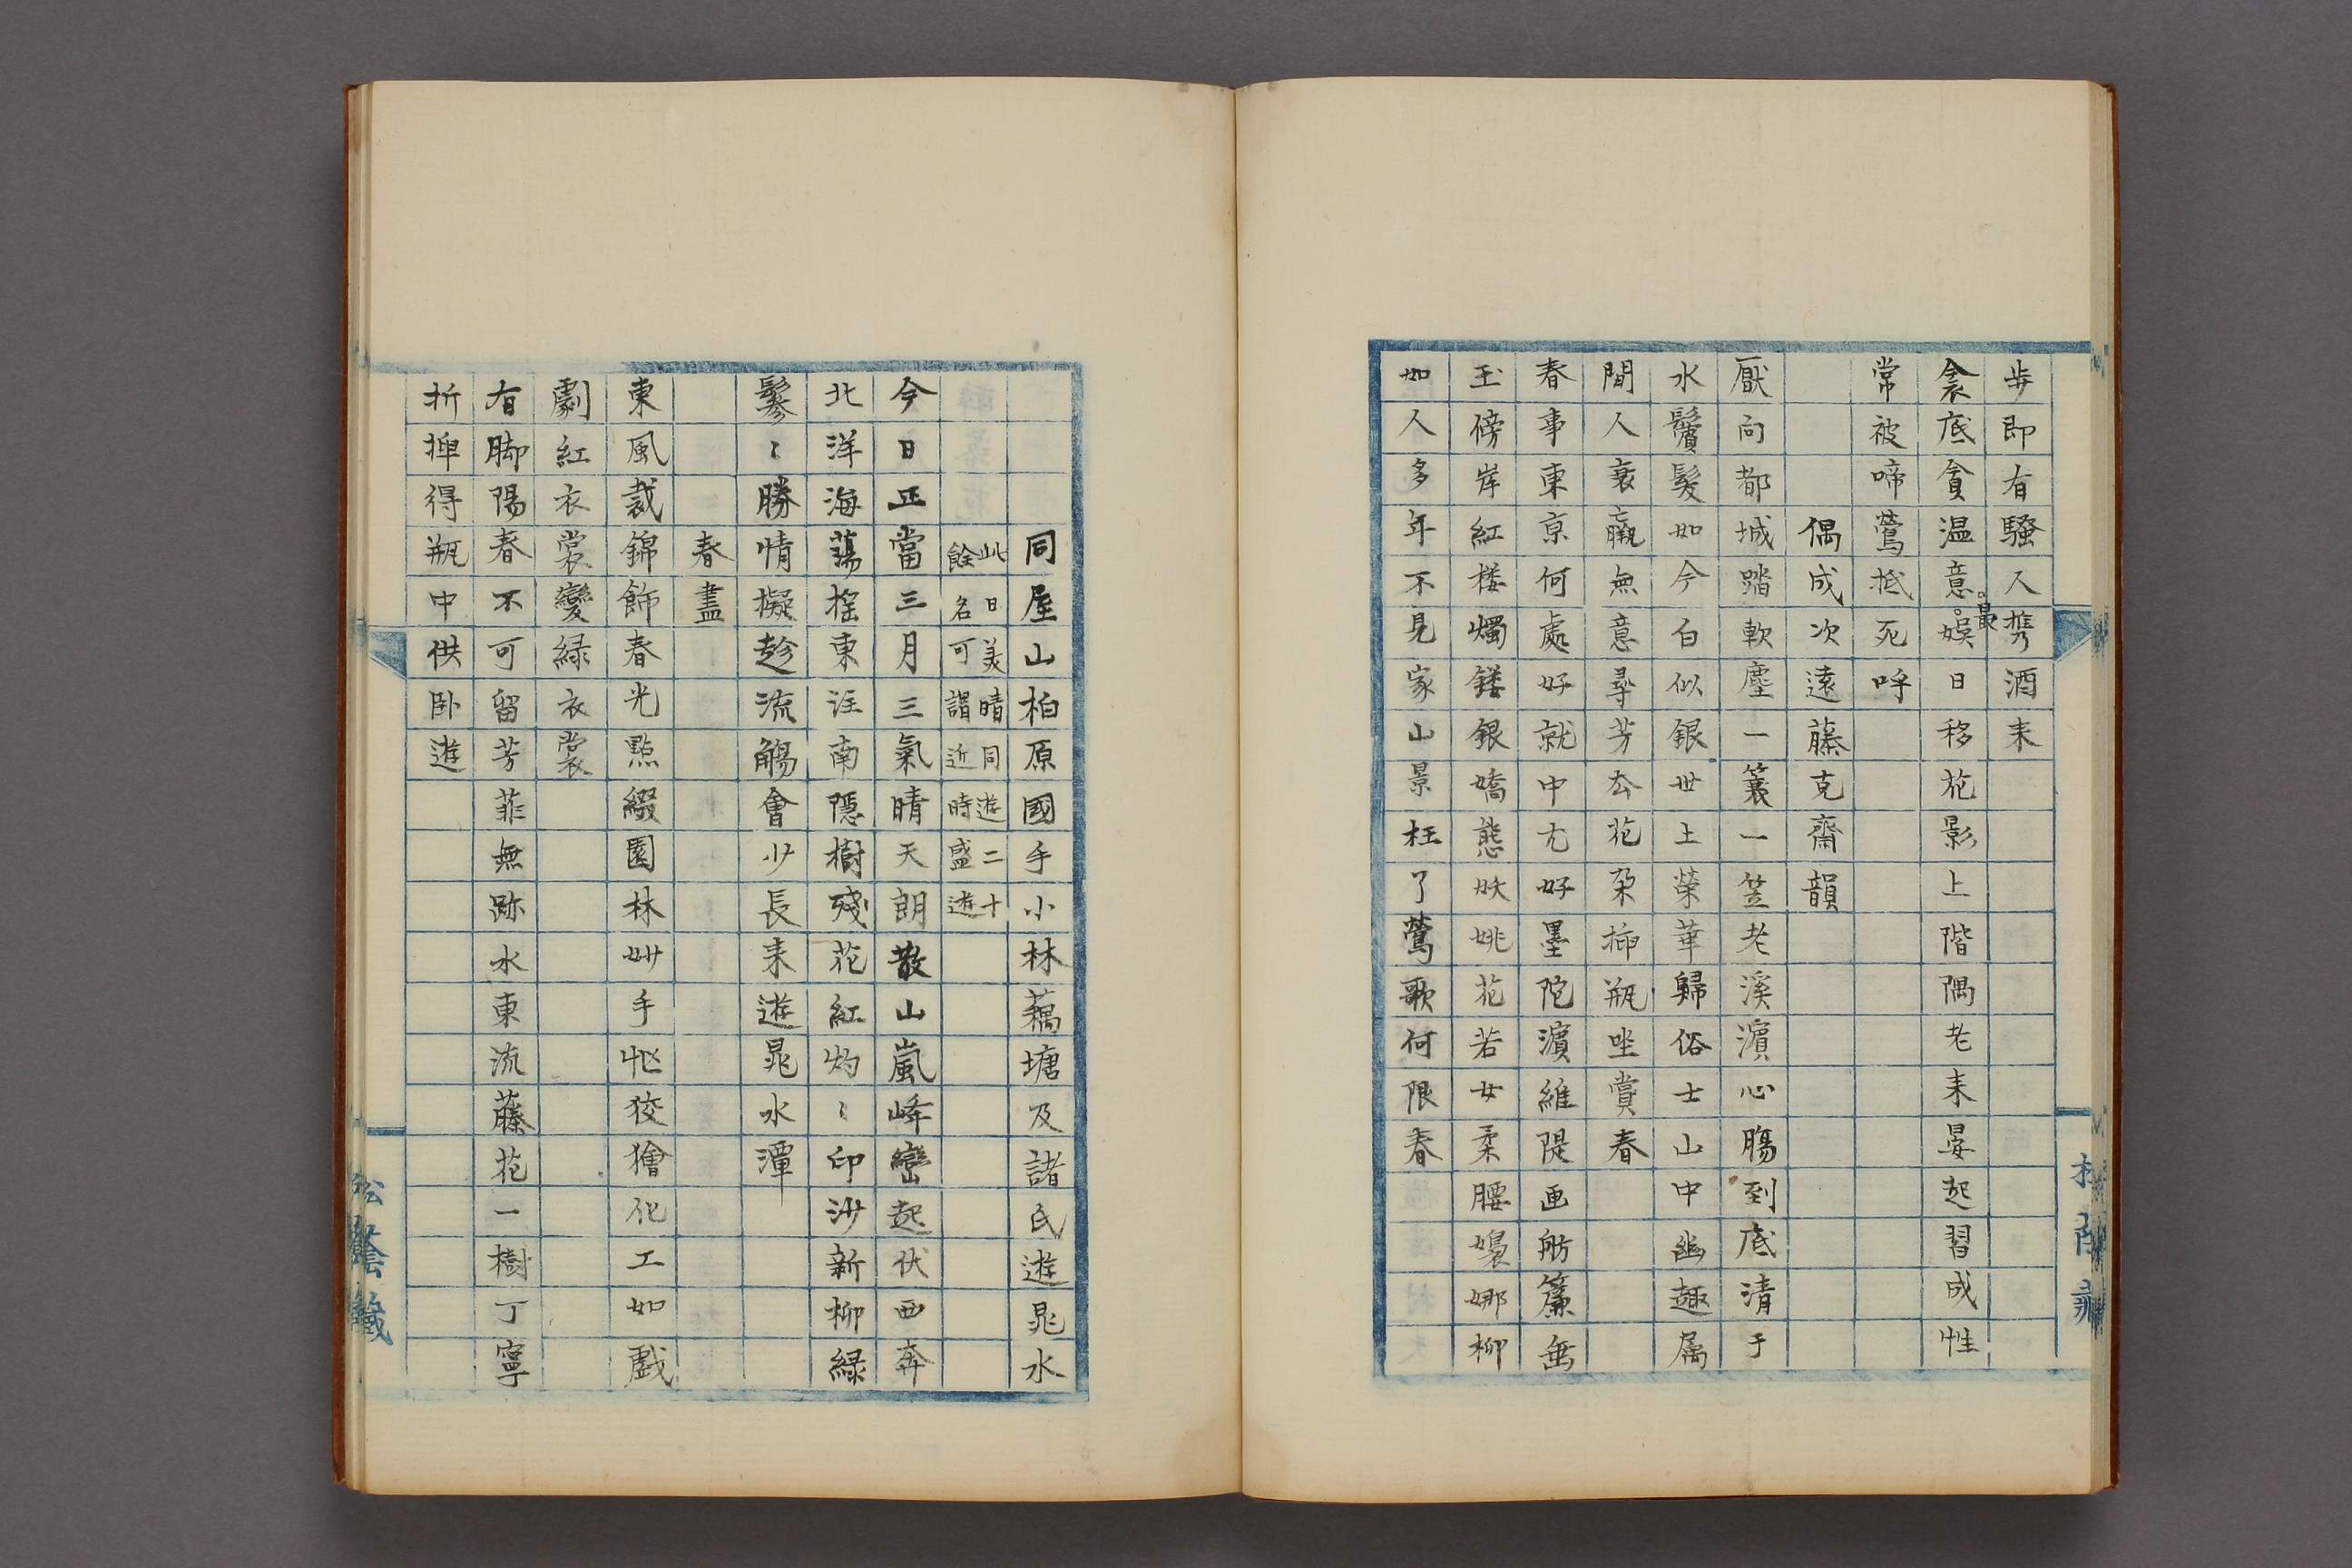 歩即有騷人携酒来
衾底貪温意最娯日移花影上階隅老来晏起習成性
常被啼鶯抵死呼
偶成次遠藤克齋韻
厭向都城踏軟塵一簑一笠老溪濵心膓到底清于
水鬢髮如今白似銀世上榮華歸俗士山中幽趣属
間人衰羸無意尋芳去花朶挿瓶坐賞春
春事東京何處好就中尤好墨陀濵維隄画舫簾垂
玉傍岸紅楼燭鏤銀嬌態妖姚花若女柔腰嫋娜柳
如人多年不見家山景枉了鶯歌何限春
同屋山柏原國手小林藕塘及諸氏遊晁水
此日美晴同遊二十
餘名可謂近時盛遊
今日正當三月三氣晴天朗散山嵐峰巒起伏西奔
北洋海蕩揺東注南隱樹殘花紅灼〻印沙新柳緑
鬖〻勝情擬趁流觴會少長来遊晁水潭
春盡
東風裁錦飾春光點綴園林妙手忙狡獪化工如戲
劇紅衣裳變緑衣裳
有脚陽春不可留芳菲無跡水東流藤花一樹丁寧
折挿得瓶中供卧遊